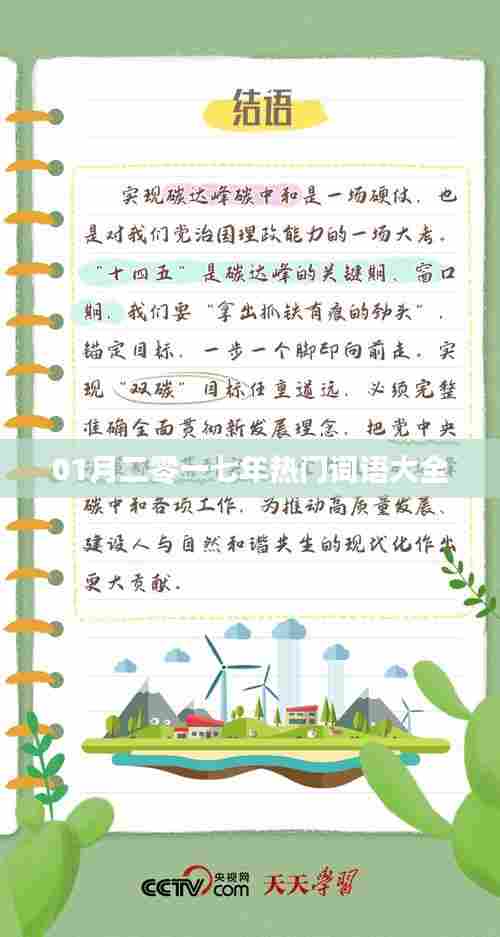 结语
实现碳达峰碳中和是一场硬仗，也
是对我们党治国理政能力的一场大考。
“十四五”是碳达峰的关键期、窗口
期，我们要“拿出抓铁有痕的劲头”，
锚定目标，一步一个脚印向前走。实
现“双碳”目标任重道远，必须完整
准确全面贯彻新发展理念，把党中央
01月二零一七年热门词语大全
碳中和各项工作，为推动高质量发展、
建设人与自然和谐共生的现代化作出
更大贡献。
CCTV.com 央视网 天天学习